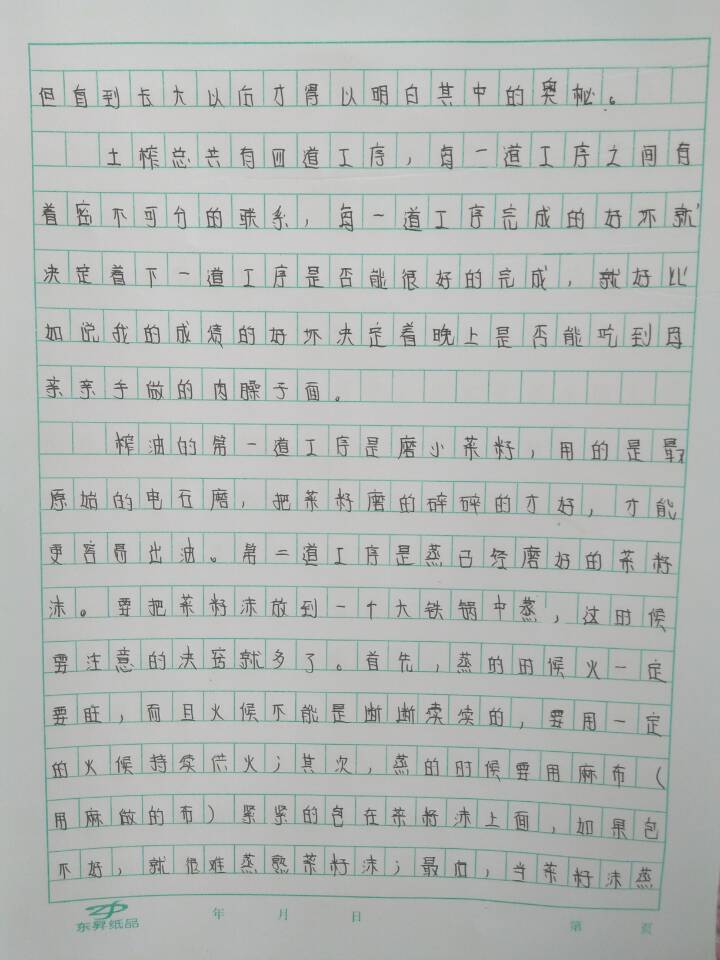 但自到长大以后才得以明白其中的奥秘。
土榨总共有四道工序，每一道工序之间有
着密不可分的联系，每一道工序完成的好坏就
决定着下一道工序是否能很好的完成，就好比
如说我的成绩的好坏决定着晚上是否能吃到母
亲亲手做的肉臊子面。
榨油的第一道工序是磨小菜籽，用的是最
原始的电石磨，把菜籽磨的碎碎的才好，才能
更容易出油。第二道工序是蒸已经磨好的菜籽
沫。要把菜籽沫放到一个大铁锅中蒸，这时候
要注意的决窍就多了。首先，蒸的时候火一定
要旺，而且火候不能是断断续续的，要用一定
的火候持续供火；其次，蒸的时候要用麻布（
用麻做的布）紧紧的包在菜籽沫上面，如果包
不好，就很难蒸熟菜籽沫；最后，当菜籽沫蒸
东昇纸品 年 月 日 第 页